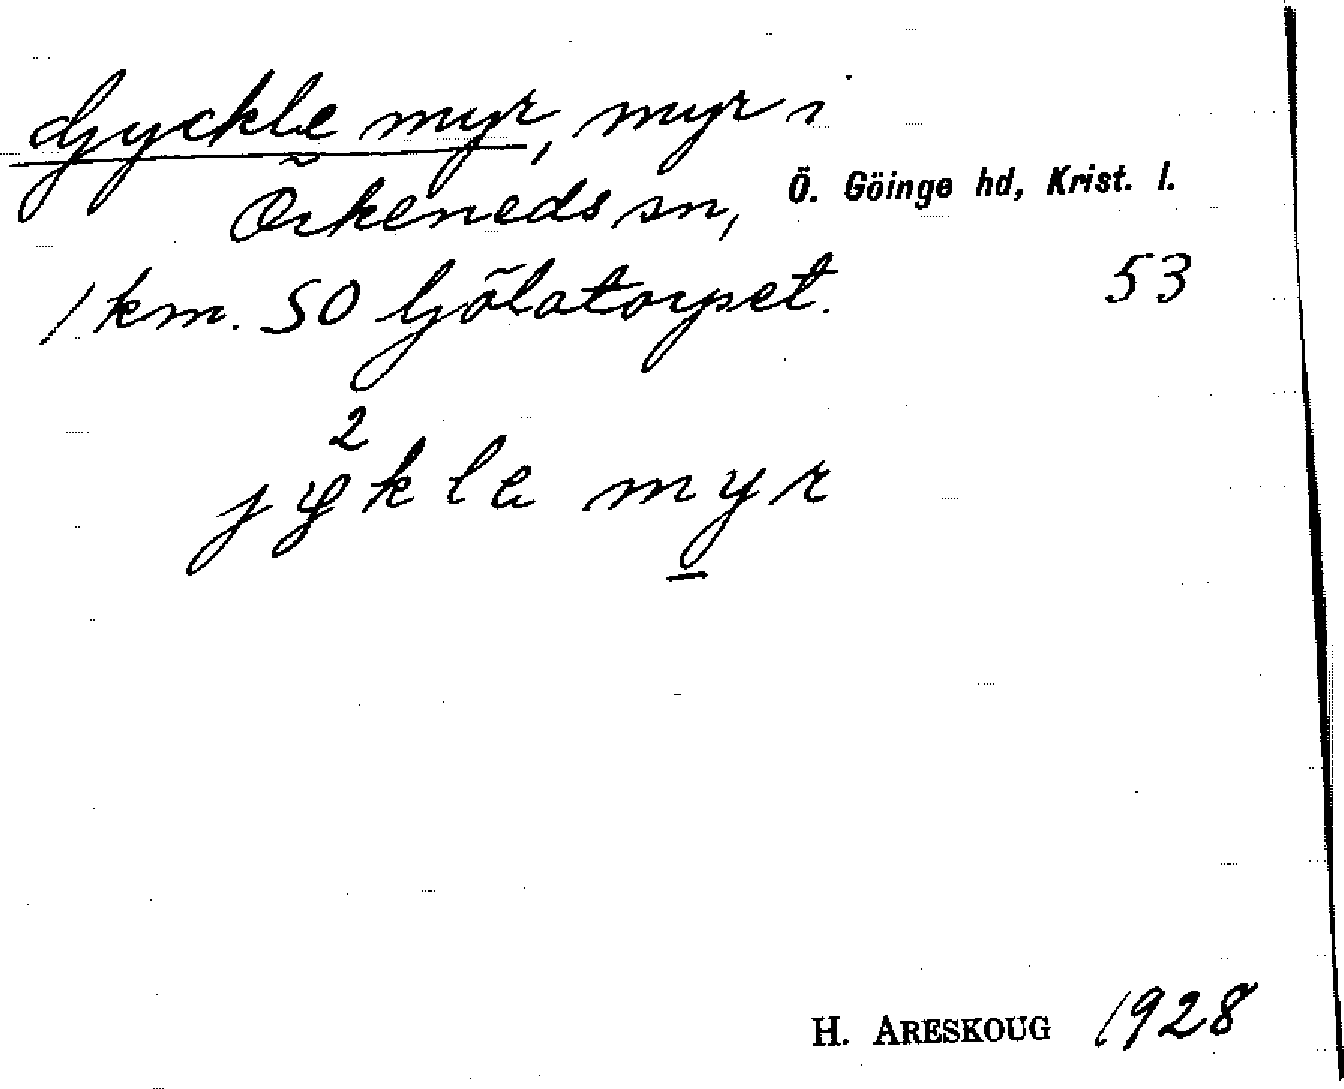 Gyckle myr, myr i
Örkeneds sn, Ö. Göinge hd, Krist. l.
1 km. SO Ljölatorpet. 53
2
jykle myr
H. ARESKOUG 1928